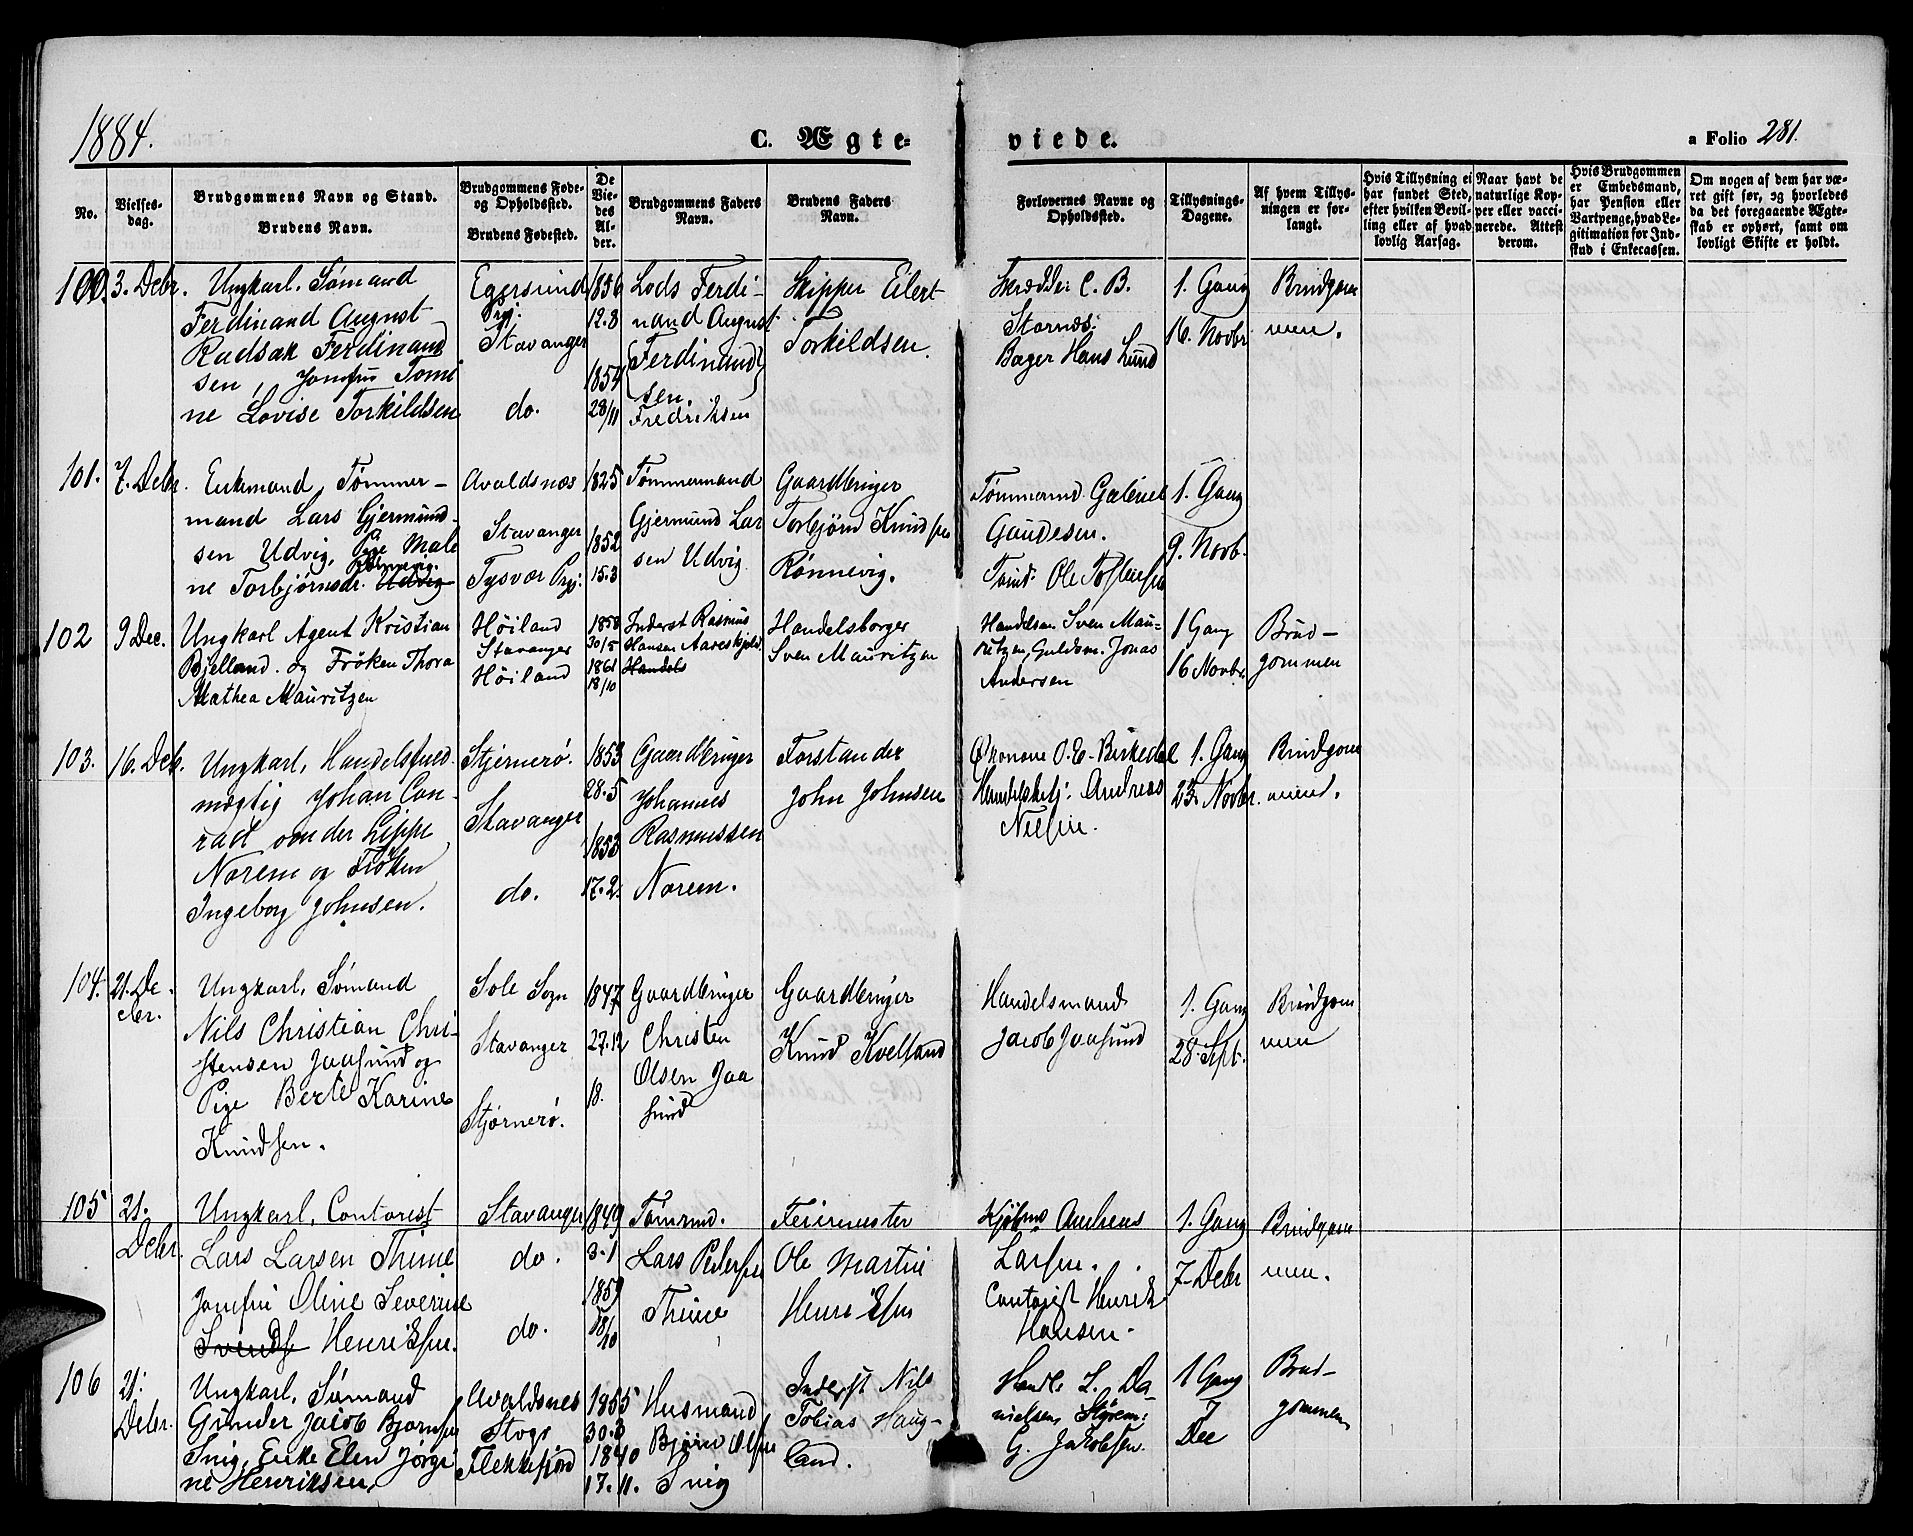 1884.
C. Ægte-
viede.
a Folio 281.
No.
Vielses-
dag.
Brudgommens Navn og Stand.
Brudens Navn.
Brudgommens Føde-
og Opholdssted.
Brudens Fødested.
De
Vie-
des
Al-
der.
Brudgommens Faders
Navn.
Brudens Faders
Navn.
Forlovernes Navne og
Opholdssted.
Tillysnings-
Dagene.
Af hvem Tillys-
ningen er for-
langt.
Hvis Tillysning ei
har fundet Sted,
efter hvilken Bevil-
ling eller af hvad
lovlig Aarsag.
Naar havt de
naturlige Kop-
per eller vacci-
nerede. Attest
derom.
Hvis Brudgommen
er Embedsmand,
har Pension eller
Vartpenge, hvad Le-
gitimation for Ind-
skud i Enkecassen.
Om nogen af dem har væ-
ret gift før, og hvorledes
da det foregaaende Ægte-
skab er ophørt, samt om
lovligt Skifte er holdt.
100. 3. Debr.
Ungkarl. Sømand
Ferdinand August
Radsak Ferdinand
sen, Jomfru Tomi
ne Lovise Torkildsen
Egersund
Prgj.
Stavanger
do.
1856
12.8
1854
28/11
Lods Ferdi-
nand August
(Ferdinand)
sen.
Fredriksen
Skipper Eilert
Torkildsen.
Skrædder C. B.
Stornæs.
Bager Hans Lund
1. Gang
16. Novbr
Brudgom
men.
101. 7. Debr.
Enkemand, Tømmer-
mand Lars Gjermund-
sen Udvig, Pige Male
Rønnevig.
ne Torbjørnsdr. Udvig
Avaldsnæs
Stavanger
Tysvær Prgj:
1825
1852
15.3
Tømmermand
Gjermund Lar
sen Udvig
Gaardbruger
Torbjørn Knudsen
Rønnevig.
Tømmermd Gabriel
Gaudesen.
Tømd: Ole Tostensen
1. Gang
9. Novb.
102 9 Dec.
Ungkarl Agent Kristian
Bjelland og Frøken Thora
Mathea Mauritzen
Høiland
Stavanger
Høiland
1858
30/5
1861
18/10
Inderst Rasmus
Hansen Aareskjold
Handels
Handelsborger
Sven Mauritzen
Handelsm Sven Mau-
ritzen, Guldsm. Jonas
Andersen
1 Gang
16 Novbr.
Brud-
gommen
103. 16. Deb.
Ungkarl, Handelsfuld-
mægtig Johan Con-
rad von der Lippe
Norem og Frøken
Ingeborg Johnsen.
Stjernerø.
Stavanger
do.
1853
28.5
1853
17.2.
Gaardbruger
Johannes
Rasmussen
Norem.
Forstander
John Johnsen
Økonom O. E. Birkedal
Handelsbetj: Andreas
Nielsen.
1. Gang
23. Novbr.
Brudgom
mend.
104. 21. De.
cbr.
Ungkarl, Sømand
Nils Christian Chri-
stensen Jaasund og
Pige Berte Karine
Knudsen.
Sole Sogn
Stavanger
Stjørnerø.
1847
27.12
18.
Gaardbruger
Christen
Olsen Jaa
sund
Gaardbruger
Knud Kvelland
Handelsmand
Jacob Jaasund
1. Gang
28. Spt.
Brudgom
men
105 21.
Debr.
Ungkarl, Contorist
Lars Larsen Thime
Jomfru Oline Severine
Svendse Henriksen.
Stavanger
do.
do.
1849
3.1
1859
18/10
Tømmd.
Lars Pedersen
Thime
Feiermester
Ole Martin
Henriksen
Kjøbmd
Larsen.
Contorist Henrik
Hansen.
1. Gang
7. Debr
Brudgom
men.
106 21.
Debr.
Ungkarl, Sømand
Gunder Jacob Bjørnsen
Snig, Enke Elen Jørgi
ne Henriksen,
Avaldsnes
Stvgr
Flekkefjord
1855
30.3
1840
17.11.
Husmand
Bjørn Olsen
Snig
Inderst Nils
Tobias Haug-
land.
Handl. L. Da-
nielsen, Styrem:
G. Jakobsen.
1 Gang
7
Dec
Brud-
gommen